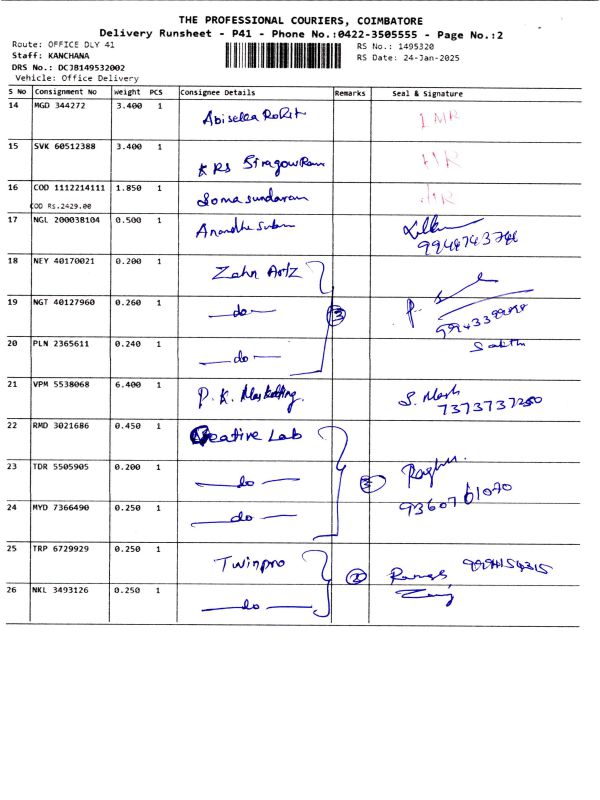 THE PROFESSIONAL COURIERS, COIMBATORE
Delivery Runsheet - P41 - Phone No.:0422-3505555 - Page No.:2
Route: OFFICE DLY 41
Staff: KANCHANA
DRS No.: DCJB149532002
Vehicle: Office Delivery
RS No.: 1495320
RS Date: 24-Jan-2025
S No Consignment No Weight PCS Consignee Details Remarks Seal & Signature
14 MGD 344272 3.400 1
15 SVK 60512388 3.400 1 KRS
16 COD 1112214111 1.850 1 Soma sundaram
COD Rs.2429.00
17 NGL 200038104 0.500 1
18 NEY 40170021 0.200 1 Zahn Artz
19 NGT 40127960 0.260 1 do 3
20 PLN 2365611 0.240 1 do
21 VPM 5538068 6.400 1 P.K. Marketting.
7373737250
22 RMD 3021686 0.450 1 Creative Lab
23 TDR 5505905 0.200 1 do 3 Raghu.
24 MYD 7366490 0.250 1 do 9360761070
25 TRP 6729929 0.250 1 Twinpro 2
26 NKL 3493126 0.250 1 do